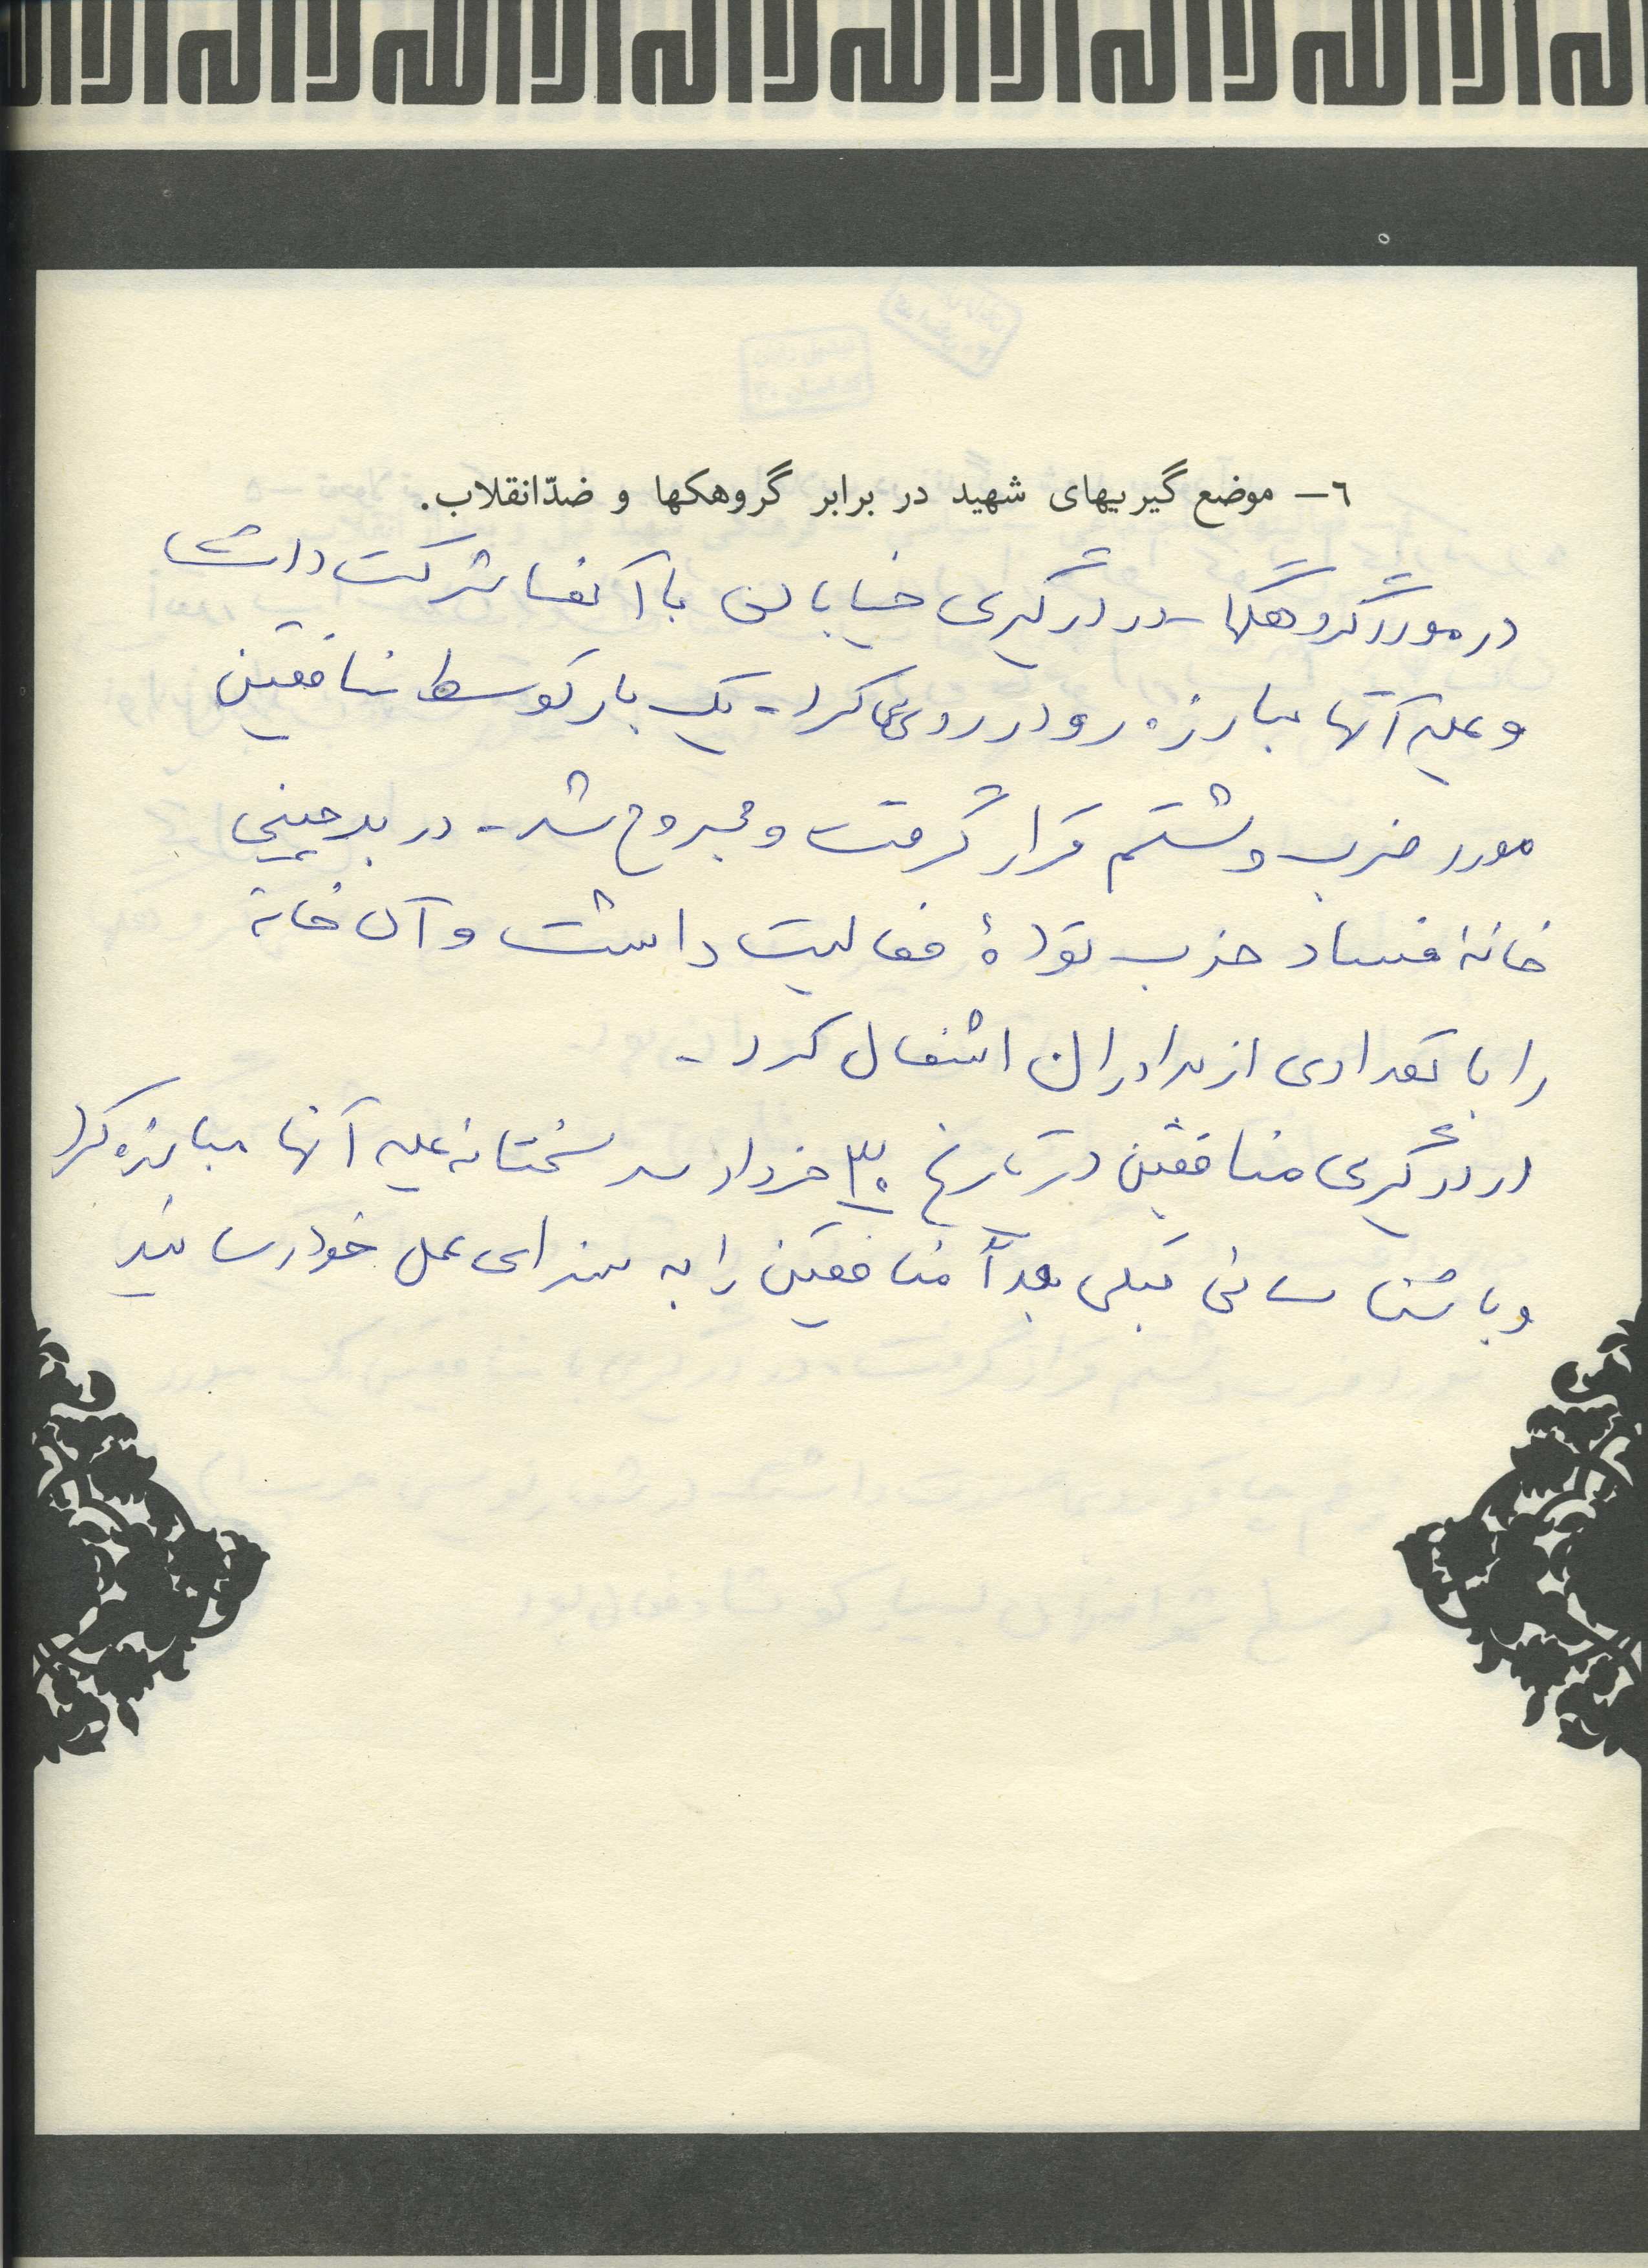 ٦– موضع گیریهای شهید در برابر گروهکها و ضدّانقلاب.
در مورد گروهکها - در درگیری خیابانی با آنها شرکت داشت
و علیه آنها مبارزه رو در رو می کرد - یک بار توسط منافقین
مورد ضرب و شتم قرار گرفت و مجروح شد - در برچینی
خانهٔ فساد حزب تودهٔ فعالیت داشت و آن خانه
را با تعدادی از برادران اشغال کرد -
در درگیری منافقین در تاریخ ۳۰ خرداد سرسختانه علیه آنها مبارزه کرد
و با شناسائی قبلی بعداً منافقین را به سزای عمل خود رسانید